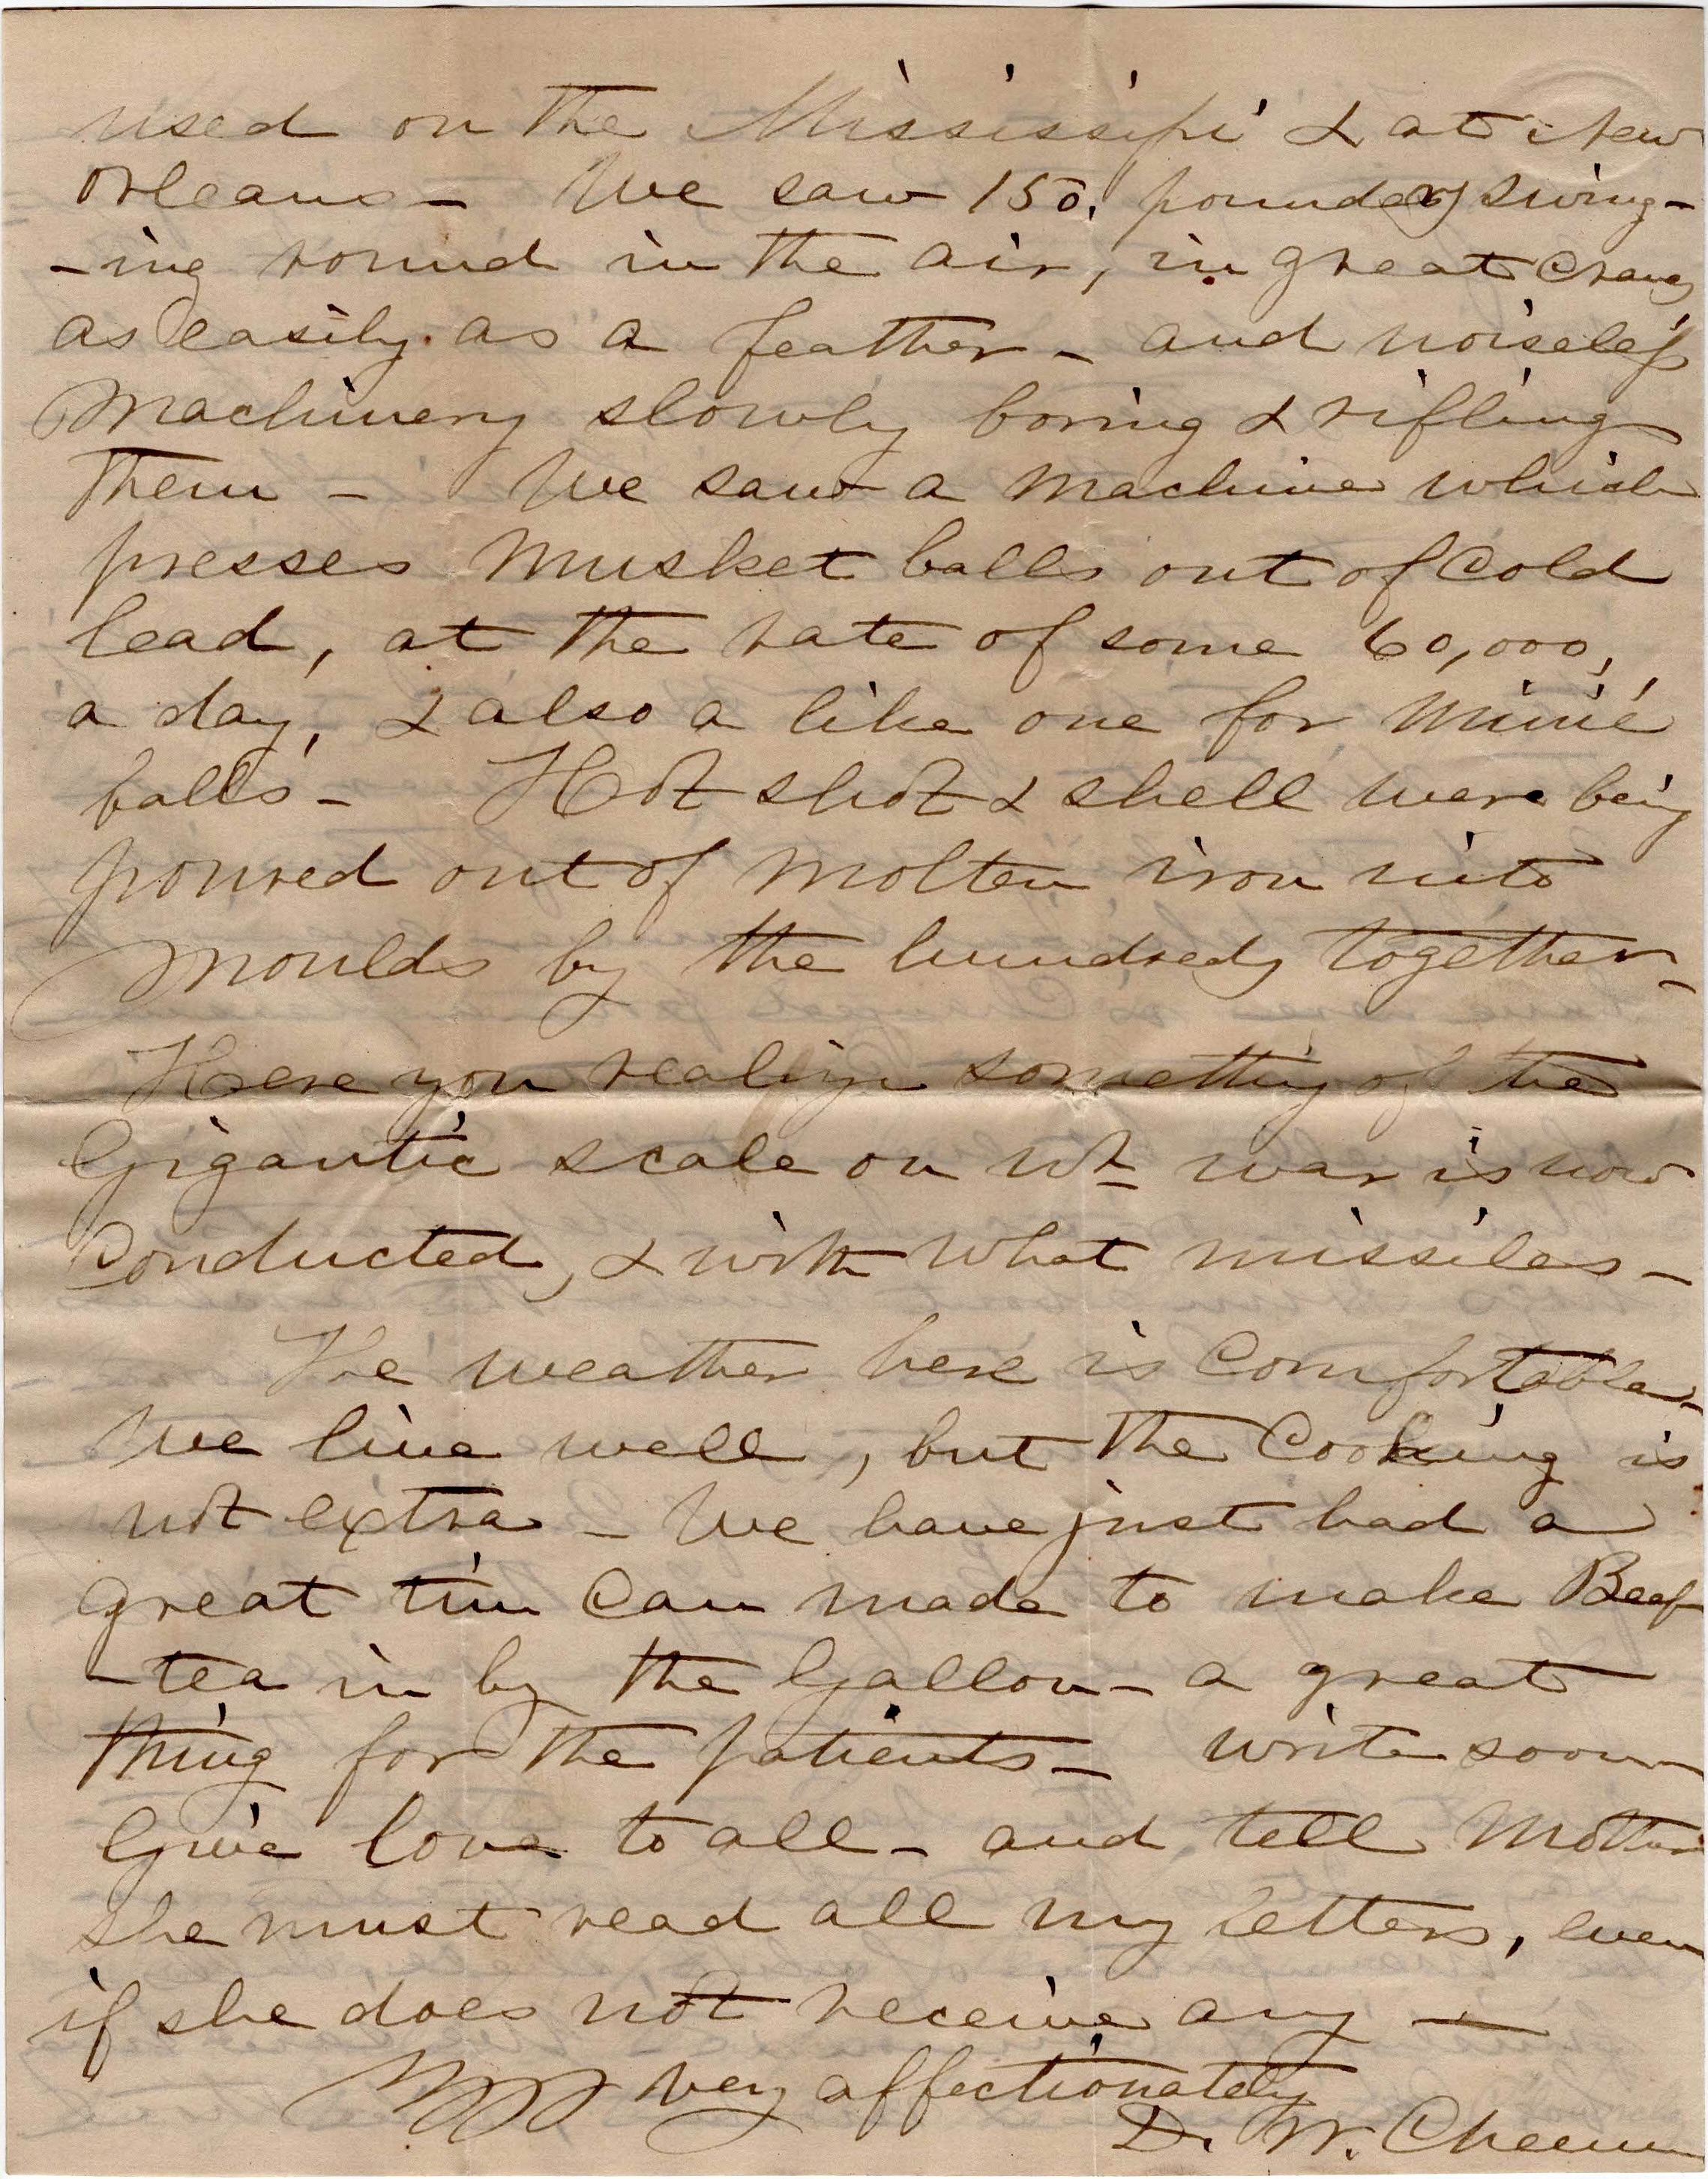 used on the Mississipi & at New
Orleans - We saw 150. pounders swing-
-ing round in the air, in great cranes
as easily as a feather - and noiseless
machinery slowly boring & rifling
them - We saw a machine which
presses musket balls out of cold
lead, at the rate of some 60,000,
a day, & also a like one for Minié
balls - Hot shot & shell were being
poured out of molten iron into
moulds by the hundreds together -
Here you realize something of the
Gigantic scale on wh war is now
Conducted, & with what missiles -
The weather here is Comfortable -
We live well, but the Cooking is
not extra - We have just had a
great tin Can made to make Beef
-tea in by the Gallon - a great
thing for the patients - write soon
Give love to all - and tell Mother
she must read all my letters, even
if she does not receive any -
very affectionately
D. W. Cheever